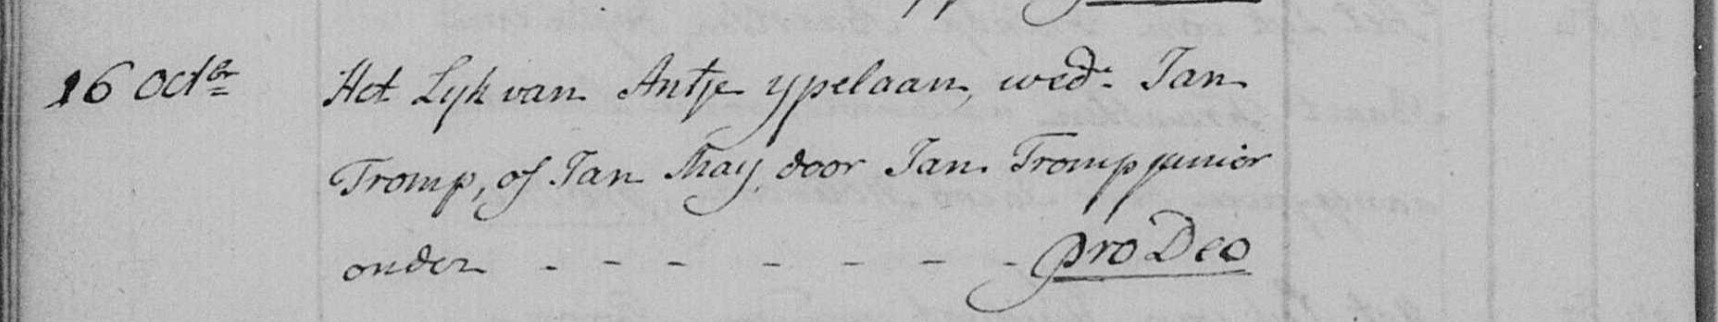 16 Octbr Het Lyk van Antje ypelaan, wed. Jan
Tromp, of Jan May, door Jan Tromp junior
onder - - - - - - - pro Deo